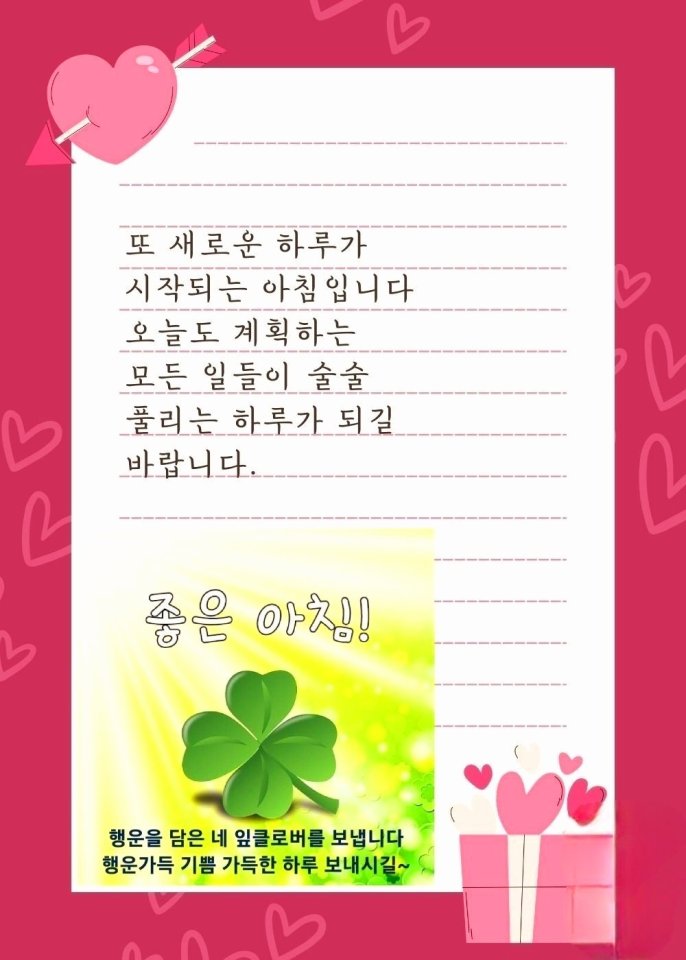 또 새로운 하루가
시작되는 아침입니다
오늘도 계획하는
모든 일들이 술술
풀리는 하루가 되길
바랍니다.
좋은 아침!
행운을 담은 네 잎클로버를 보냅니다
행운가득 기쁨 가득한 하루 보내시길~